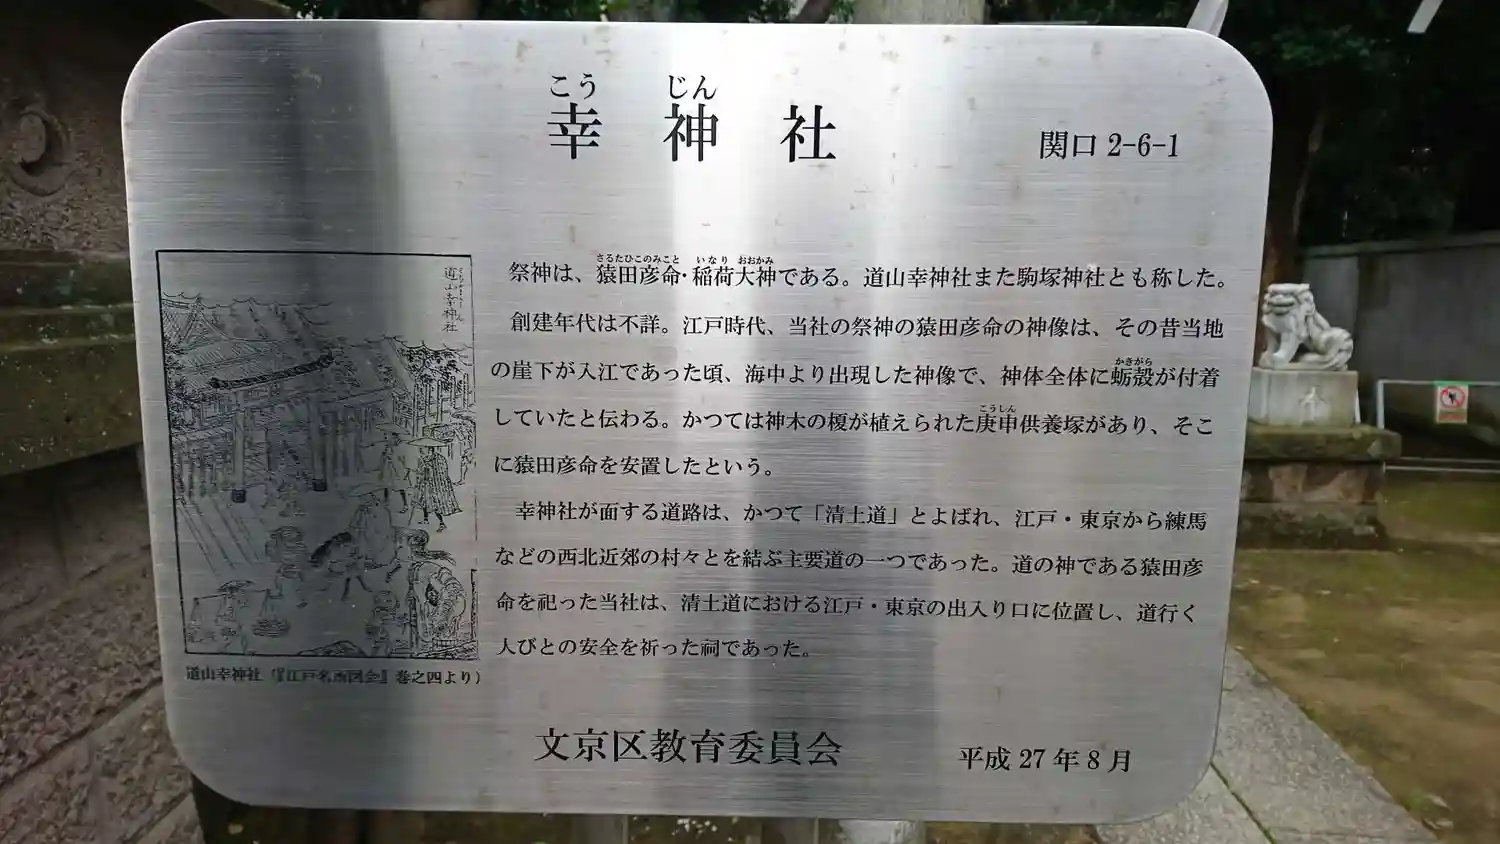 こう じん
幸神社
関口 2-6-1
祭神は、猿田彦命・稲荷大神である。道山幸神社また駒塚神社とも称した。
さるたひこのみこと いなり おおかみ
創建年代は不詳。江戸時代、当社の祭神の猿田彦命の神像は、その昔当地
の崖下が入江であった頃、海中より出現した神像で、神体全体に蛎殻が付着
かきがら
していたと伝わる。かつては神木の榎が植えられた庚申供養塚があり、そこ
こうしん
に猿田彦命を安置したという。
幸神社が面する道路は、かつて「清土道」とよばれ、江戸・東京から練馬
などの西北近郊の村々とを結ぶ主要道の一つであった。道の神である猿田彦
命を祀った当社は、清土道における江戸・東京の出入り口に位置し、道行く
人びとの安全を祈った祠であった。
道山幸神社
道山幸神社（『江戸名所図会』巻之四より）
文京区教育委員会
平成 27 年 8 月